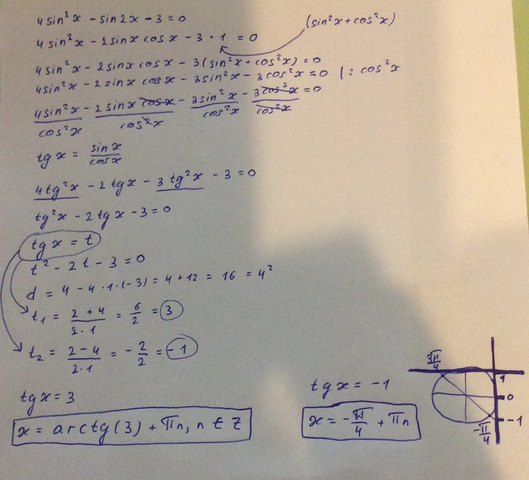 4sin²x - sin2x - 3 = 0
(sin²x + cos²x)
4sin²x - 2sinx cosx - 3 · 1 = 0
4sin²x - 2sinx cosx - 3(sin²x + cos²x) = 0
4sin²x - 2sinx cosx - 3sin²x - 3cos²x = 0 |: cos²x
4sin²x/cos²x - 2sinx cosx/cos²x - 3sin²x/cos²x - 3cos²x/cos²x = 0
tgx = sinx/cosx
4tg²x - 2tgx - 3tg²x - 3 = 0
tg²x - 2tgx - 3 = 0
tgx = t
t² - 2t - 3 = 0
d = 4 - 4 · 1 · (-3) = 4 + 12 = 16 = 4²
t₁ = 2+4/2·1 = 6/2 = 3
t₂ = 2-4/2·1 = -2/2 = -1
tgx = 3
x = arctg(3) + πn, n ∈ Z
tgx = -1
x = -π/4 + πn
3π/4
1
0
-1
-π/4